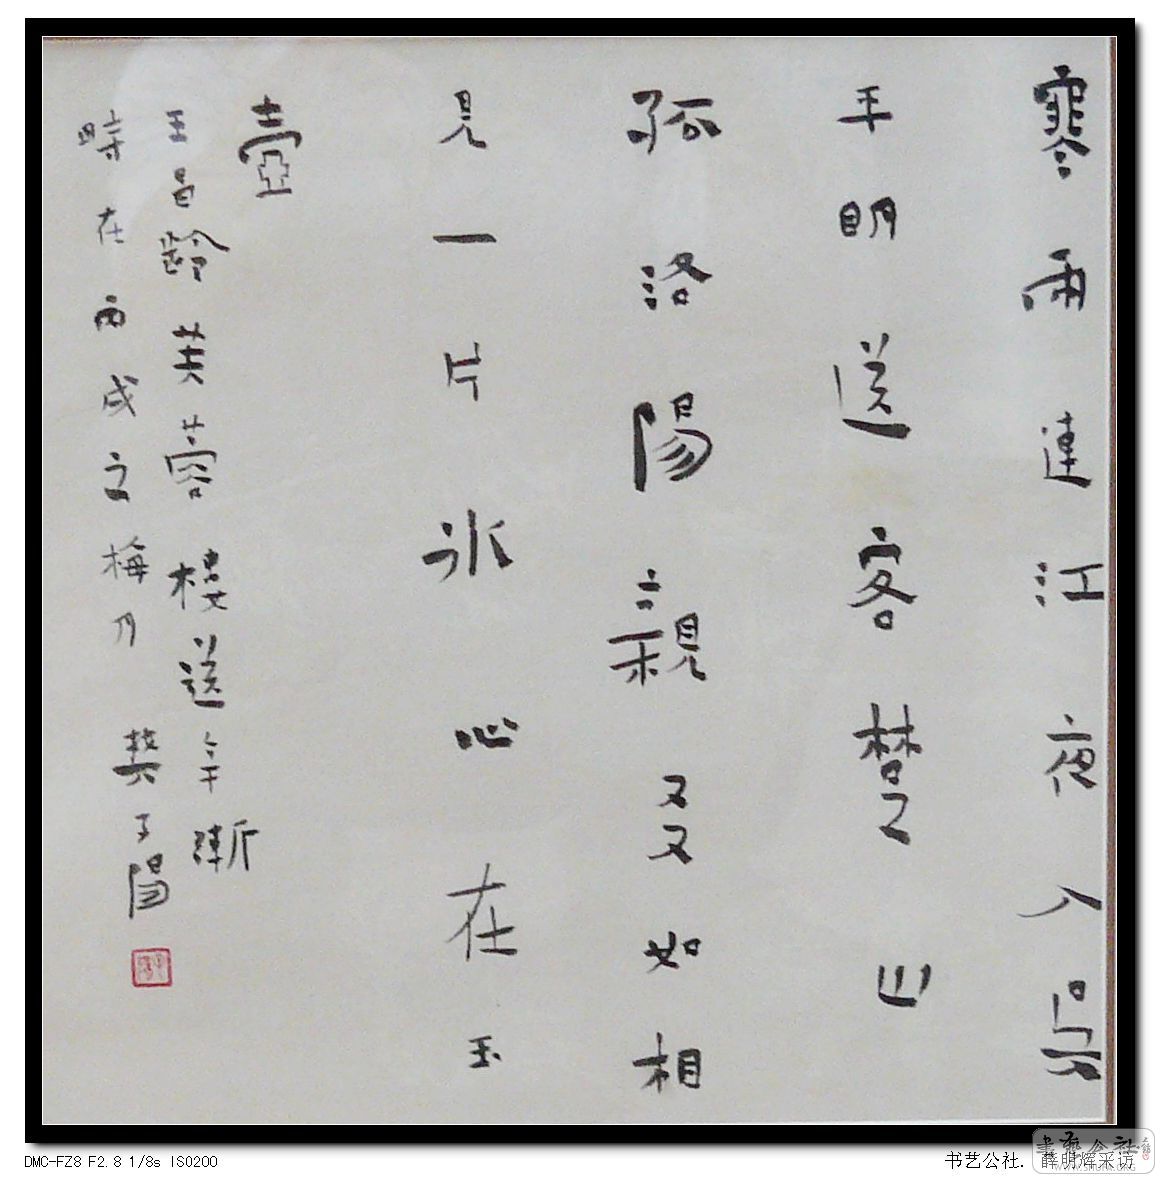 寒雨連江夜入吳
平明送客楚山
孤洛陽親㕛如相
見一片冰心在玉
壺
王昌齡芙蓉樓送辛漸
時在丙戌之梅月 樊子陽
DMC-FZ8 F2.8 1/8s ISO200
书艺公社. 薛明辉采访
書藝公社